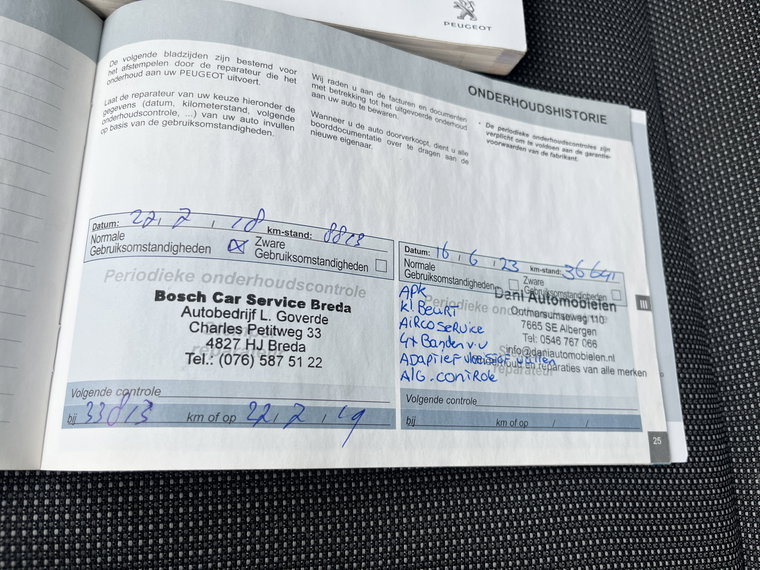 PEUGEOT
ONDERHOUDSHISTORIE
De volgende bladzijden zijn bestemd voor
het afstempelen door de reparateur die het
onderhoud aan uw PEUGEOT uitvoert.
Laat de reparateur van uw keuze hieronder de
gegevens (datum, kilometerstand, volgende
onderhoudscontrole, ...) van uw auto invullen
op basis van de gebruiksomstandigheden.
Wij raden u aan de facturen en documenten
met betrekking tot het uitgevoerde onderhoud
aan uw auto te bewaren.
Wanneer u de auto doorverkoopt, dient u alle
boorddocumentatie over te dragen aan de
nieuwe eigenaar.
• De periodieke onderhoudscontroles zijn
verplicht om te voldoen aan de garantie-
voorwaarden van de fabrikant.
Datum: 22, 2, 18 km-stand: 8813
Normale
Gebruiksomstandigheden
Zware
Gebruiksomstandigheden
Periodieke onderhoudscontrole
Bosch Car Service Breda
Autobedrijf L. Goverde
Charles Petitweg 33
4827 HJ Breda
Tel.: (076) 587 51 22
Volgende controle
bij 33813 km of op 22, 2, 19
Datum: 16, 6, 23 km-stand: 36641
Normale
Gebruiksomstandigheden
Zware
Gebruiksomstandigheden
Periodieke
Dani Automobielen
Ootmarsumseweg 110
7665 SE Albergen
Tel: 0546 767 066
info@daniautomobielen.nl
en reparaties van alle merken
reparateur
APK
KL BEURT
AIRCO SERVICE
4x Banden v.v
ALG. CONTROLE
Volgende controle
bij km of op / /
III
25